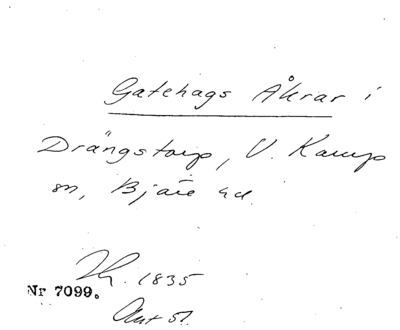 Gatehags Åkrar i
Drängstorp, V. Karup
sn, Bjäre hd.
1835
Nr 7099.
Akt 51